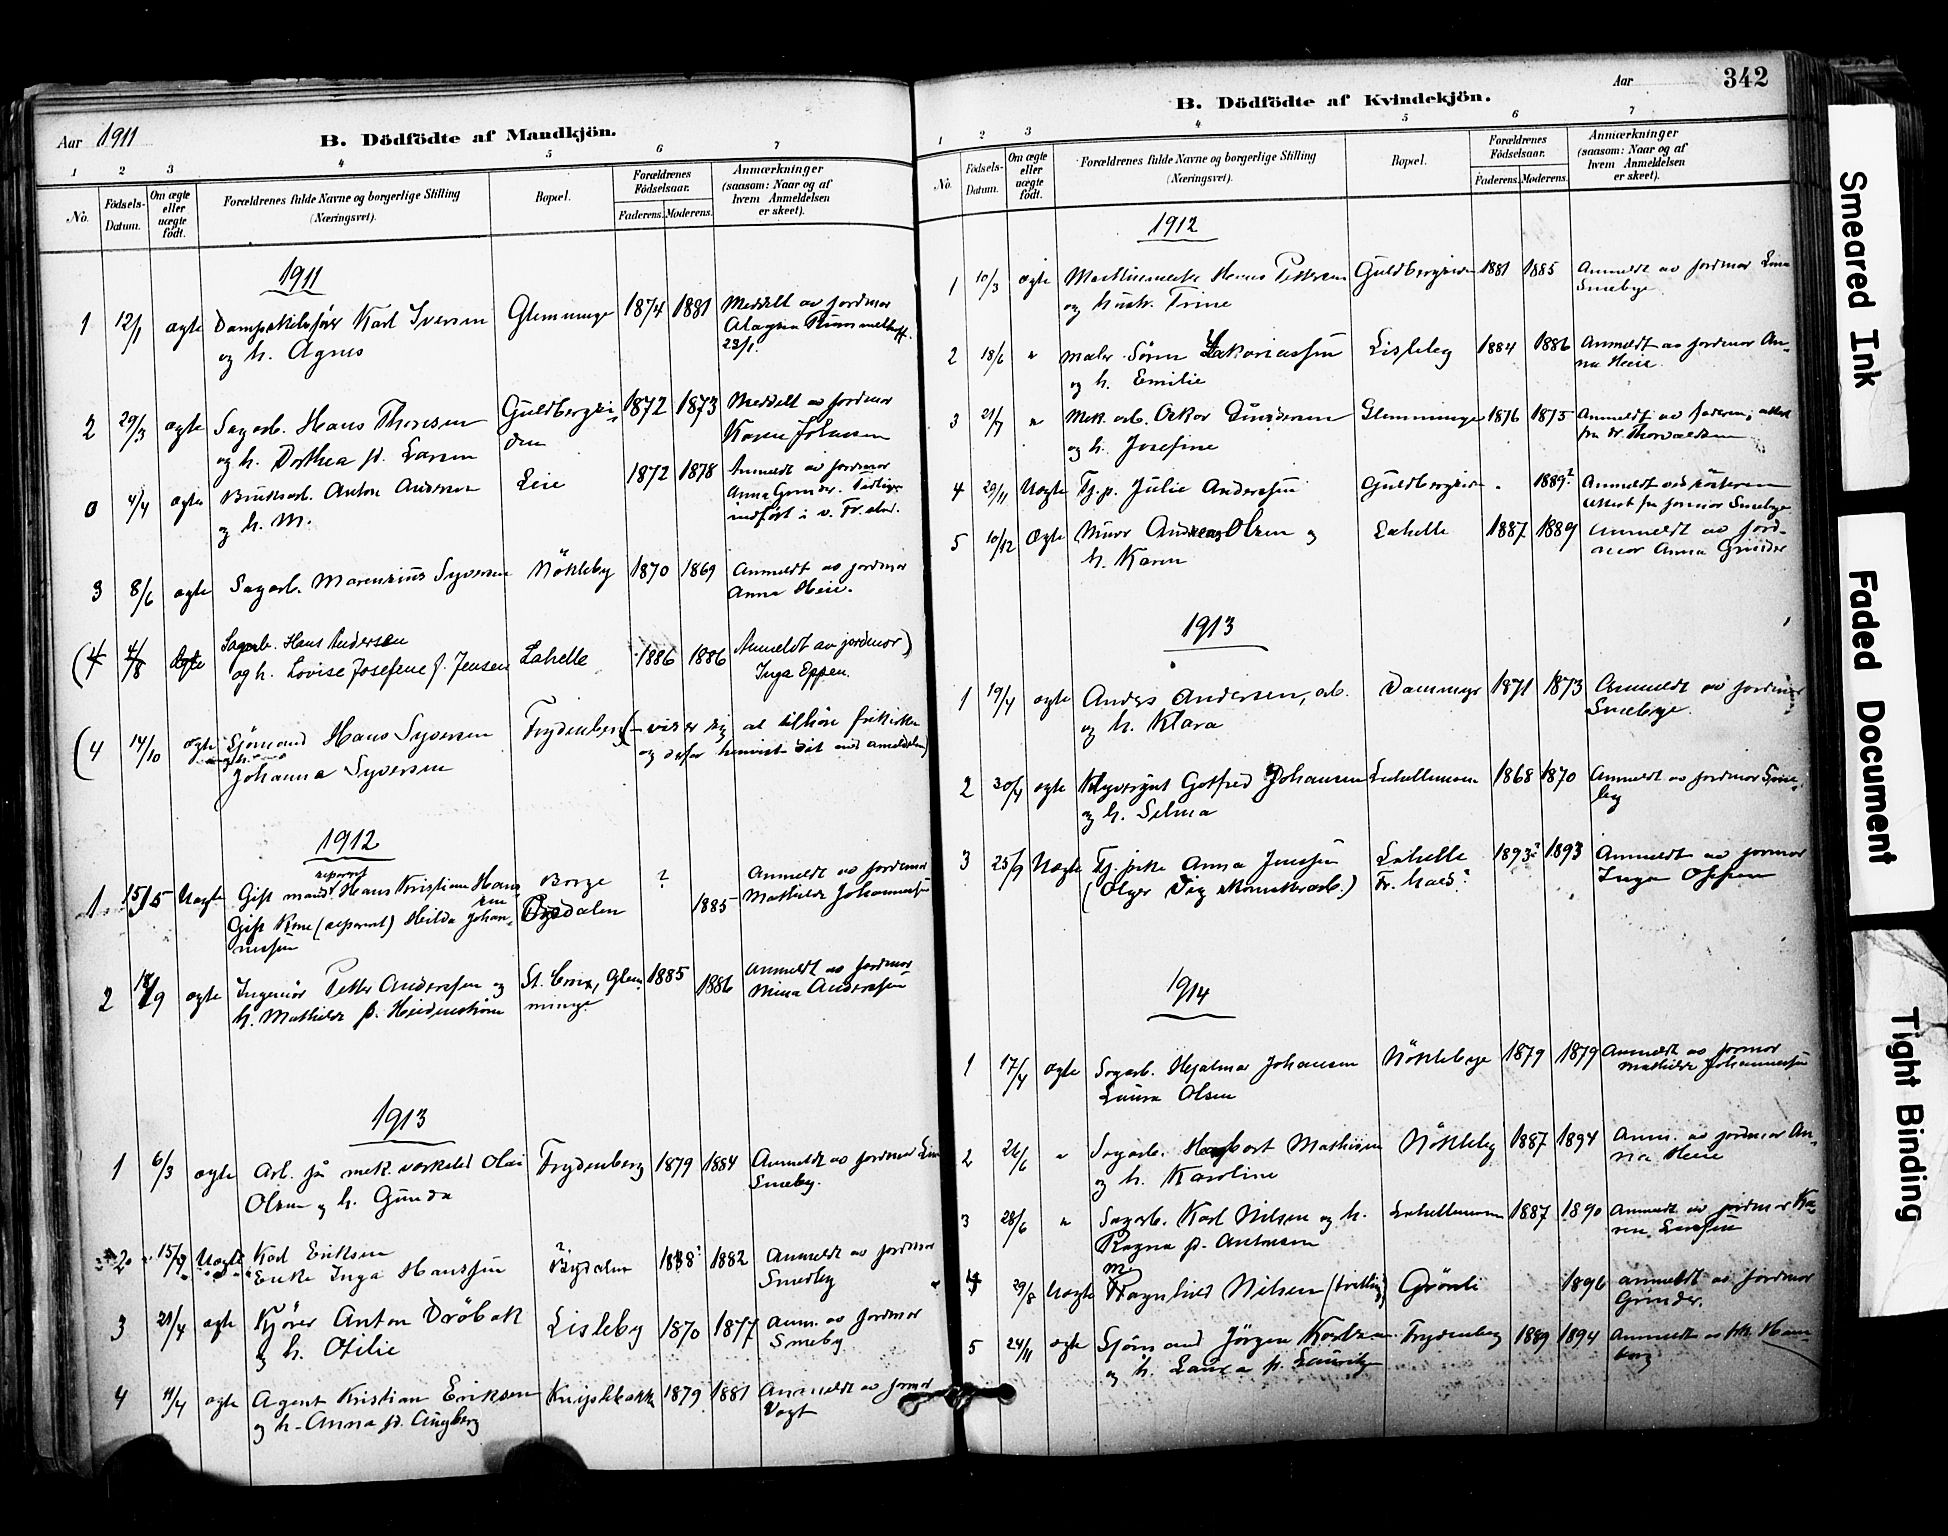 Aar 1911
B. Dödfödte af Mandkjön.
1 2 3 4 5 6 7
No.
Födsels-Datum.
Om ægte eller uægte födt.
Forældrenes fulde Navne og borgerlige Stilling (Næringsvei).
Bopæl.
Forældrenes Födselsaar.
Faderens. Moderens.
Anmærkninger (saasom: Naar og af hvem Anmeldelsen er skeet).
1911
1 12/1 ægte Karl Iversen Glemminge 1874 1881 Meddelt av jordmor
og h. Agnes
23/1.
2 29/3 ægte Sagarb. Hans Thoresen 1872 1873 Meddelt av jordmor
og h. Dorthea f. Larsen Karen Johansen
0 4/4 ægte Bruksarb. Anton Andersen Leie 1872 1878 Anmeldt av jordmor
og h. M. Anna Grinder.
indført i v. Fr.stad.
3 8/6 ægte Sagarb. Marensius Syversen Nökleby 1870 1869 Anmeldt av jordmor
Anna Heie.
(4 4/8 ægte Sagarb. Hans Andersen
og h. Lovise Josefine f. Jensen Lahelle 1886 1886 Anmeldt av jordmor)
Inga Eppen.
(4 14/10 ægte Sjömand Hans Syversen Frydenberg (- viser sig at tilhöre frikirken
og derfor henvist dit med anmeldelsen)
Johanna Syversen
1912
1 15/5 Uægte separert
Gift mand Hans Kristian Hansen Borge ? Anmeldt av jordmor
Gift Kone (separert) Hilda Johannessen 1885 Mathilde Johannessen
2 18/9 ægte Ingeniör Petter Anderssen og St. Croix, Glemminge 1885 1886 Anmeldt av jordmor
h. Mathilde f. Heidenström Mina Anderssen
1913
1 6/3 ægte Arb. på mek. verksted Olai Frydenberg 1879 1884 Anmeldt av jordmor Lina
Olsen og h. Gunda Smeby.
2 15/9 Uægte Karl Eriksen
Enke Inga Hanssen ? Bydalen 1888? 1882 Anmeldt av jordmor
Smeby
3 21/4 ægte Kjörer Anton Dröbak Lisleby 1870 1877 Anm. av jordmor
og h. Otilie Smeby
4 11/4 ægte Agent Kristian Eriksen 1879 1881 Anmeldt av jormor
og h. Anna f. Vogt
342
Aar
B. Dödfödte af Kvindekjön.
1 2 3 4 5 6 7
No.
Födsels-Datum.
Om ægte eller uægte födt.
Forældrenes fulde Navne og borgerlige Stilling (Næringsvei).
Bopæl.
Forældrenes Födselsaar.
Faderens. Moderens.
Anmærkninger (saasom: Naar og af hvem Anmeldelsen er skeet).
1912
1 10/3 ægte Pettersen 1881 1885 Anmeldt av jordmor Lina
og hustr. Trine Smebye.
2 18/6 " maler Sören Zakariassen Lisleby 1884 1886 Anmeldt av jordmor Anna Heie.
og h. Emilie
3 21/7 " Mek. arb. Oskar Gundersen Glemminge 1876 1875 Anmeldt av faderen; attest
og h. Josefine fra dr. Thorvaldsen
4 29/11 Uægte Tj.p. Julie Anderssen - 1889?
attest fra jormor Smebye
5 10/12 Ægte Murer Andreas Olsen og Lahelle 1887 1889 Anmeldt av jordmor Anna Grinder
h. Karen
1913
1 19/4 ægte Anders Andersen, arb. Dammyr 1871 1873 Anmeldt av jordmor
og h. Klara Smebye.
2 30/4 ægte Gotfred Johansen Lahellemoen 1868 1870 Anmeldt av jordmor Smeby
og h. Selma
3 25/9 Uægte Tj. pike Anna Jenssen Lahelle 1893? 1893 Anmeldt av jormor
Inga Oppen
1914
1 17/4 ægte Sagarb. Hjalmar Johansen Nöklebye 1879 1879 Anmeldt av jormor
Laura Olsen Mathilde Johannessen
2 26/6 " Sagarb. Herbart Mathisen Nökleby 1887 1894 Anm. av jordmor Anna Heie
og h. Karoline
3 28/6 " Sagarb. Karl Nilsen og h. Lahellemoen 1887 1890 Anmeldt av jordmor Karen Larssen
Ragna f. Antonsen
4 29/8 Uægte Ragnhild Nilsen (tvilling) Grönli 1896 anmeldt av jordmor
Grinder.
5 24/11 ægte Sjömand Jörgen Karlsen Frydenberg 1889 1894 Anmeldt av
og h. Laura f. Lauritzen
Smeared Ink
Faded Document
Tight Binding